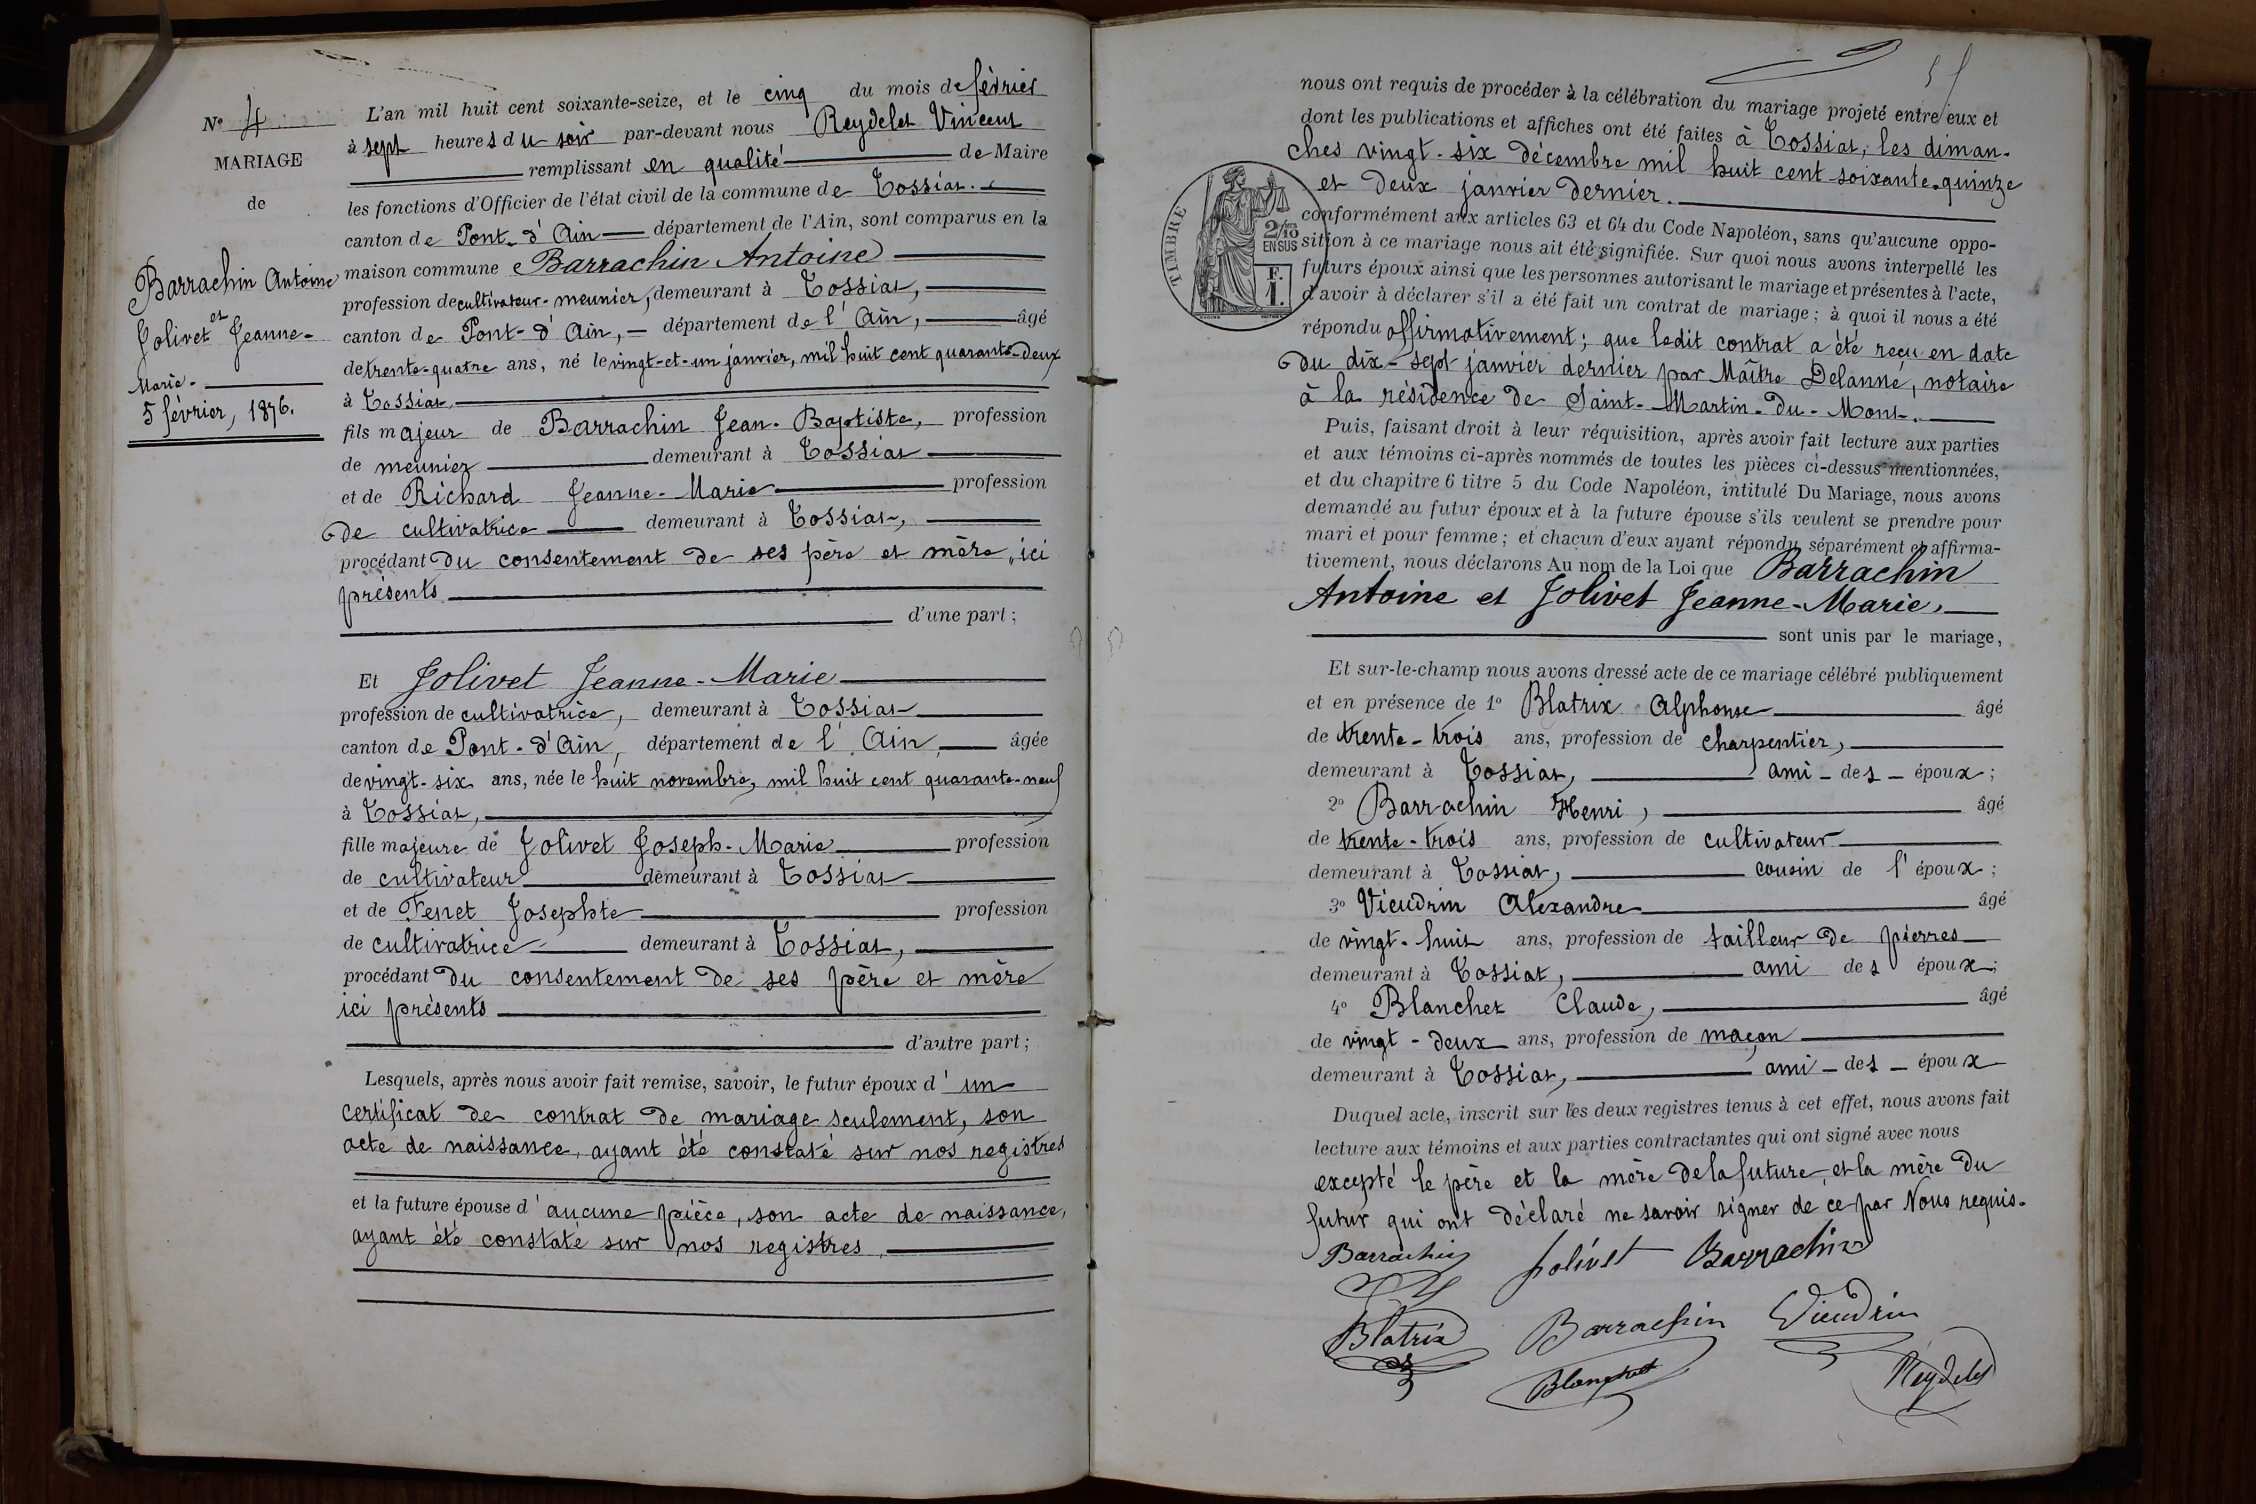 N° 4
MARIAGE
de
Barrachin Antoine
et
Jolivet Jeanne-
Marie.
5 février, 1876.
L'an mil huit cent soixante-seize, et le cinq du mois de février
à sept heures du soir par-devant nous Reydelet Vincent
remplissant en qualité de Maire
les fonctions d'Officier de l'état civil de la commune de Tossiat.
canton de Pont-d'Ain département de l'Ain, sont comparus en la
maison commune Barrachin Antoine
profession de cultivateur-meunier, demeurant à Tossiat,
canton de Pont-d'Ain, département de l'Ain, âgé
de trente-quatre ans, né le vingt-et-un janvier, mil huit cent quarante-deux
à Tossiat,
fils majeur de Barrachin Jean-Baptiste, profession
de meunier demeurant à Tossiat
et de Richard Jeanne-Marie profession
de cultivatrice demeurant à Tossiat,
procédant du consentement de ses père et mère, ici
présents
d'une part;
Et Jolivet Jeanne-Marie
profession de cultivatrice, demeurant à Tossiat
canton de Pont-d'Ain, département de l'Ain, âgée
de vingt-six ans, née le huit novembre, mil huit cent quarante-neuf
à Tossiat,
fille majeure de Jolivet Joseph-Marie profession
de cultivateur demeurant à Tossiat
et de Tenet Josephte profession
de cultivatrice demeurant à Tossiat,
procédant du consentement de ses père et mère
ici présents
d'autre part;
Lesquels, après nous avoir fait remise, savoir, le futur époux d'un
certificat de contrat de mariage seulement, son
acte de naissance, ayant été constaté sur nos registres
et la future épouse d'aucune pièce, son acte de naissance,
ayant été constaté sur nos registres.
nous ont requis de procéder à la célébration du mariage projeté entre eux et
dont les publications et affiches ont été faites à Tossiat, les diman-
ches vingt-six décembre mil huit cent soixante-quinze
et deux janvier dernier.
TIMBRE
2/10
EN SUS
F.
1.
conformément aux articles 63 et 64 du Code Napoléon, sans qu'aucune oppo-
sition à ce mariage nous ait été signifiée. Sur quoi nous avons interpellé les
futurs époux ainsi que les personnes autorisant le mariage et présentes à l'acte,
d'avoir à déclarer s'il a été fait un contrat de mariage; à quoi il nous a été
répondu affirmativement; que ledit contrat a été reçu en date
du dix-sept janvier dernier par Maître Delanne, notaire
à la résidence de Saint-Martin-du-Mont.
Puis, faisant droit à leur réquisition, après avoir fait lecture aux parties
et aux témoins ci-après nommés de toutes les pièces ci-dessus mentionnées,
et du chapitre 6 titre 5 du Code Napoléon, intitulé Du Mariage, nous avons
demandé au futur époux et à la future épouse s'ils veulent se prendre pour
mari et pour femme; et chacun d'eux ayant répondu séparément et affirma-
tivement, nous déclarons Au nom de la Loi que Barrachin
Antoine et Jolivet Jeanne-Marie,
sont unis par le mariage,
Et sur-le-champ nous avons dressé acte de ce mariage célébré publiquement
et en présence de 1° Blatrix Alphonse âgé
de trente-trois ans, profession de charpentier,
demeurant à Tossiat, ami des époux;
2° Barrachin Henri, âgé
de trente-trois ans, profession de cultivateur
demeurant à Tossiat, cousin de l'époux;
3° Vieudrin Alexandre âgé
de vingt-huit ans, profession de tailleur de pierres
demeurant à Tossiat, ami des époux;
4° Blanchet Claude, âgé
de vingt-deux ans, profession de maçon
demeurant à Tossiat, ami des époux
Duquel acte, inscrit sur les deux registres tenus à cet effet, nous avons fait
lecture aux témoins et aux parties contractantes qui ont signé avec nous
excepté le père et la mère de la future, et la mère du
futur qui ont déclaré ne savoir signer de ce par Nous requis.
Barrachin Jolivet Barrachin
Blatrix Barrachin Vieudrin
Blanchet Reydelet